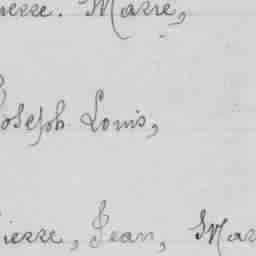 ierre. Marie,
Joseph Louis,
Pierre, Jean, Mar